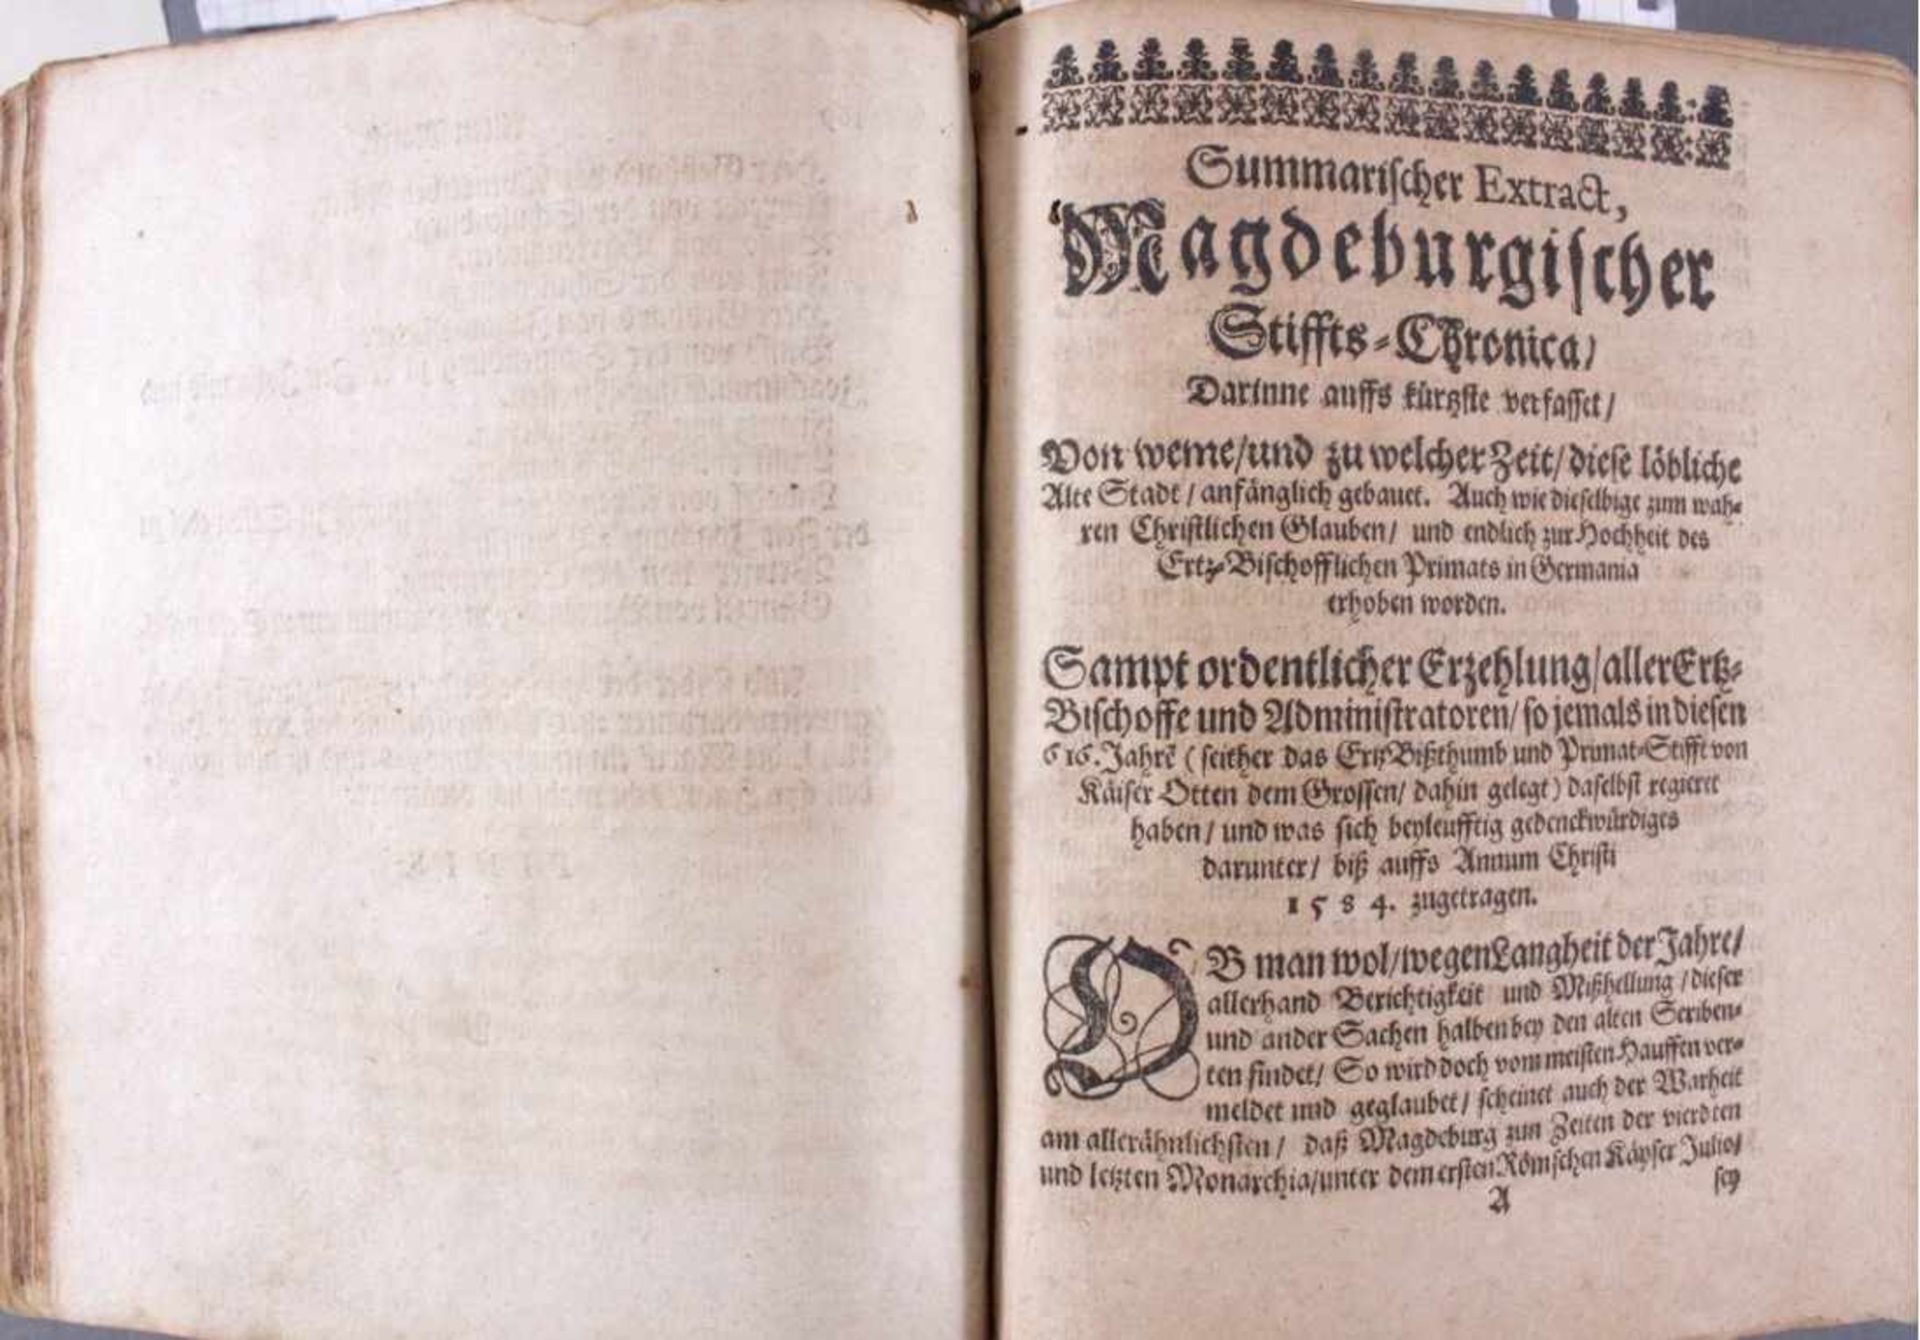 Summarischer Extract,
Magdeburgischer
Stiffts-Chronica/
Darinne auffs kürtzste verfasset/
Von weme/und zu welcher Zeit/diese löbliche
Alte Stadt/anfänglich gebauet. Auch wie dieselbige zum wah-
ren Christlichen Glauben/ und endlich zur Hochheit des
Ertz-Bischofflichen Primats in Germania
erhoben worden.
Sampt ordentlicher Erzehlung/aller Ertz-
Bischoffe und Administratoren/so jemals in diesen
616. Jahrẽ (seither das Ertz-Bißthumb und Primat-Stifft von
Käiser Otten dem Grossen/ dahin gelegt) daselbst regieret
haben/ und was sich beyleufftig gedenckwürdiges
darunter/ biß auffs Annum Christi
1584. zugetragen.
OB man wol/wegen Langheit der Jahre/
allerhand Berichtigkeit und Mißhellung/dieser
und ander Sachen halben bey den alten Scriben-
ten findet/ So wird doch vom meisten Hauffen ver-
meldet und geglaubet/ scheinet auch der Warheit
am allerähnlichsten/ daß Magdeburg zun Zeiten der vierdten
und letzten Monarchia/unter dem ersten Römschen Käyser Julio/
A sey